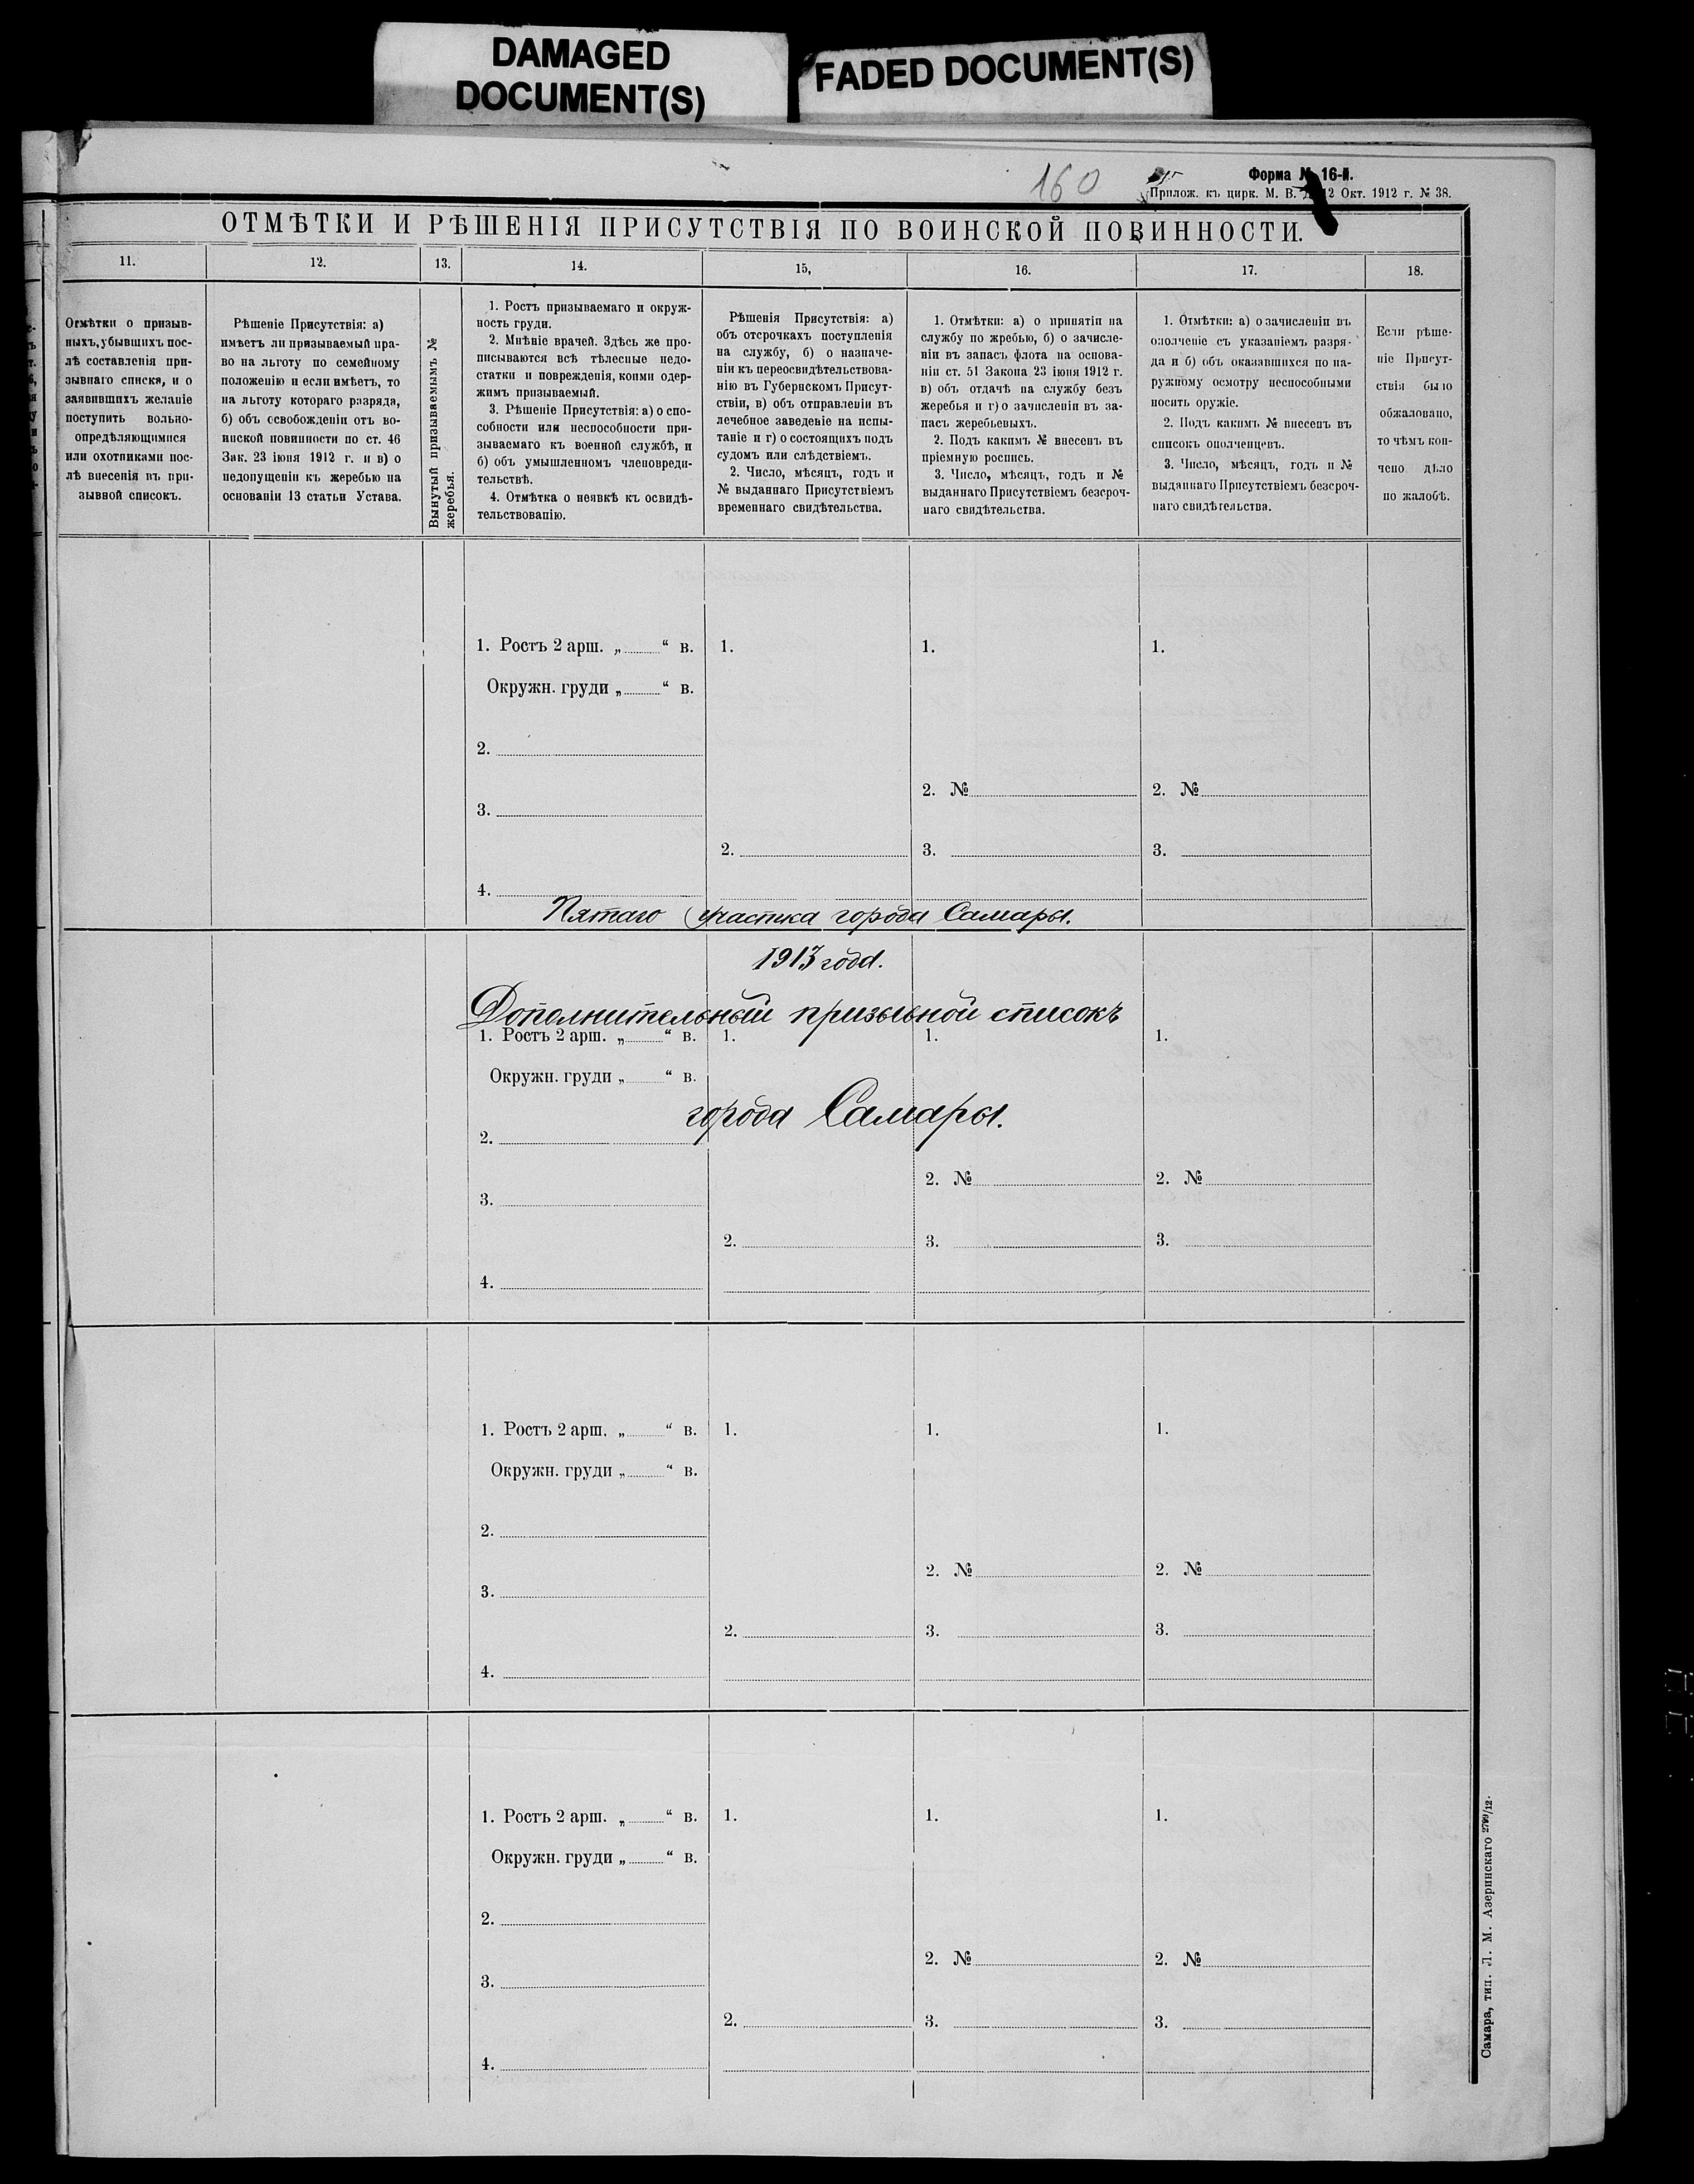 DAMAGED
DOCUMENT(S)
FADED DOCUMENT(S)
160
Форма № 16-й.
Прилож. къ цирк. М. В. Д. 12 Окт. 1912 г. № 38.
ОТМѢТКИ И РѢШЕНІЯ ПРИСУТСТВІЯ ПО ВОИНСКОЙ ПОВИННОСТИ.
11.
12.
13.
14.
15,
16.
17.
18.
Отмѣтки о призыв-
ныхъ, убывшихъ пос-
лѣ составленія при-
зывнаго списка, и о
заявившихъ желаніе
поступить вольно-
опредѣляющимися
или охотниками пос-
лѣ внесенія въ при-
зывной списокъ.
Рѣшеніе Присутствія: а)
имѣетъ ли призываемый пра-
во на льготу по семейному
положенію и если имѣетъ, то
на льготу котораго разряда,
б) объ освобожденіи отъ во-
инской повинности по ст. 46
Зак. 23 іюня 1912 г. и в) о
недопущеніи къ жеребью на
основаніи 13 статьи Устава.
Вынутый призываемымъ №
жеребья.
1. Ростъ призываемаго и окруж-
ность груди.
2. Мнѣніе врачей. Здѣсь же про-
писываются всѣ тѣлесные недо-
статки и поврежденія, коими одер-
жимъ призываемый.
3. Рѣшеніе Присутствія: а) о спо-
собности или неспособности при-
зываемаго къ военной службѣ, и
б) объ умышленномъ членовреди-
тельствѣ.
4. Отмѣтка о неявкѣ къ освидѣ-
тельствованію.
Рѣшенія Присутствія: а)
объ отсрочкахъ поступленія
на службу, б) о назначе-
ніи къ переосвидѣтельствова-
нію въ Губернскомъ Присут-
ствіи, в) объ отправленіи въ
лечебное заведеніе на испы-
таніе и г) о состоящихъ подъ
судомъ или слѣдствіемъ.
2. Число, мѣсяцъ, годъ и
№ выданнаго Присутствіемъ
временнаго свидѣтельства.
1. Отмѣтки: а) о принятіи на
службу по жребью, б) о зачисле-
ніи въ запасъ флота на основа-
ніи ст. 51 Закона 23 іюня 1912 г.
в) объ отдачѣ на службу безъ
жеребья и г) о зачисленіи въ за-
пасъ жеребьевыхъ.
2. Подъ какимъ № внесенъ въ
пріемную роспись.
3. Число, мѣсяцъ, годъ и №
выданнаго Присутствіемъ безсроч-
наго свидѣтельства.
1. Отмѣтки: а) о зачисленіи въ
ополченіе съ указаніемъ разря-
да и б) объ оказавшихся по на-
ружному осмотру неспособными
носить оружіе.
2. Подъ какимъ № внесенъ въ
списокъ ополченцевъ.
3. Число, мѣсяцъ, годъ и №
выданнаго Присутствіемъ безсроч-
наго свидѣтельства.
Если рѣше-
ніе Присут-
ствія было
обжаловано,
то чѣмъ кон-
чено дѣло
по жалобѣ.
1. Ростъ 2 арш. „ “ в. 1. 1. 1.
Окружн. груди „ “ в.
2.
2. № 2. №
3.
2. 3. 3.
4.
Пятаго участка города Самары.
1913 года.
Дополнительный призывной списокъ
1. Ростъ 2 арш. „ “ в. 1. 1. 1.
Окружн. груди „ “ в.
города Самары.
2.
2. № 2. №
3.
2. 3. 3.
4.
1. Ростъ 2 арш. „ “ в. 1. 1. 1.
Окружн. груди „ “ в.
2.
2. № 2. №
3.
2. 3. 3.
4.
1. Ростъ 2 арш. „ “ в. 1. 1. 1.
Окружн. груди „ “ в.
2.
2. № 2. №
3.
2. 3. 3.
4.
Самара, тип. Л. М. Азеринскаго 2799/12.